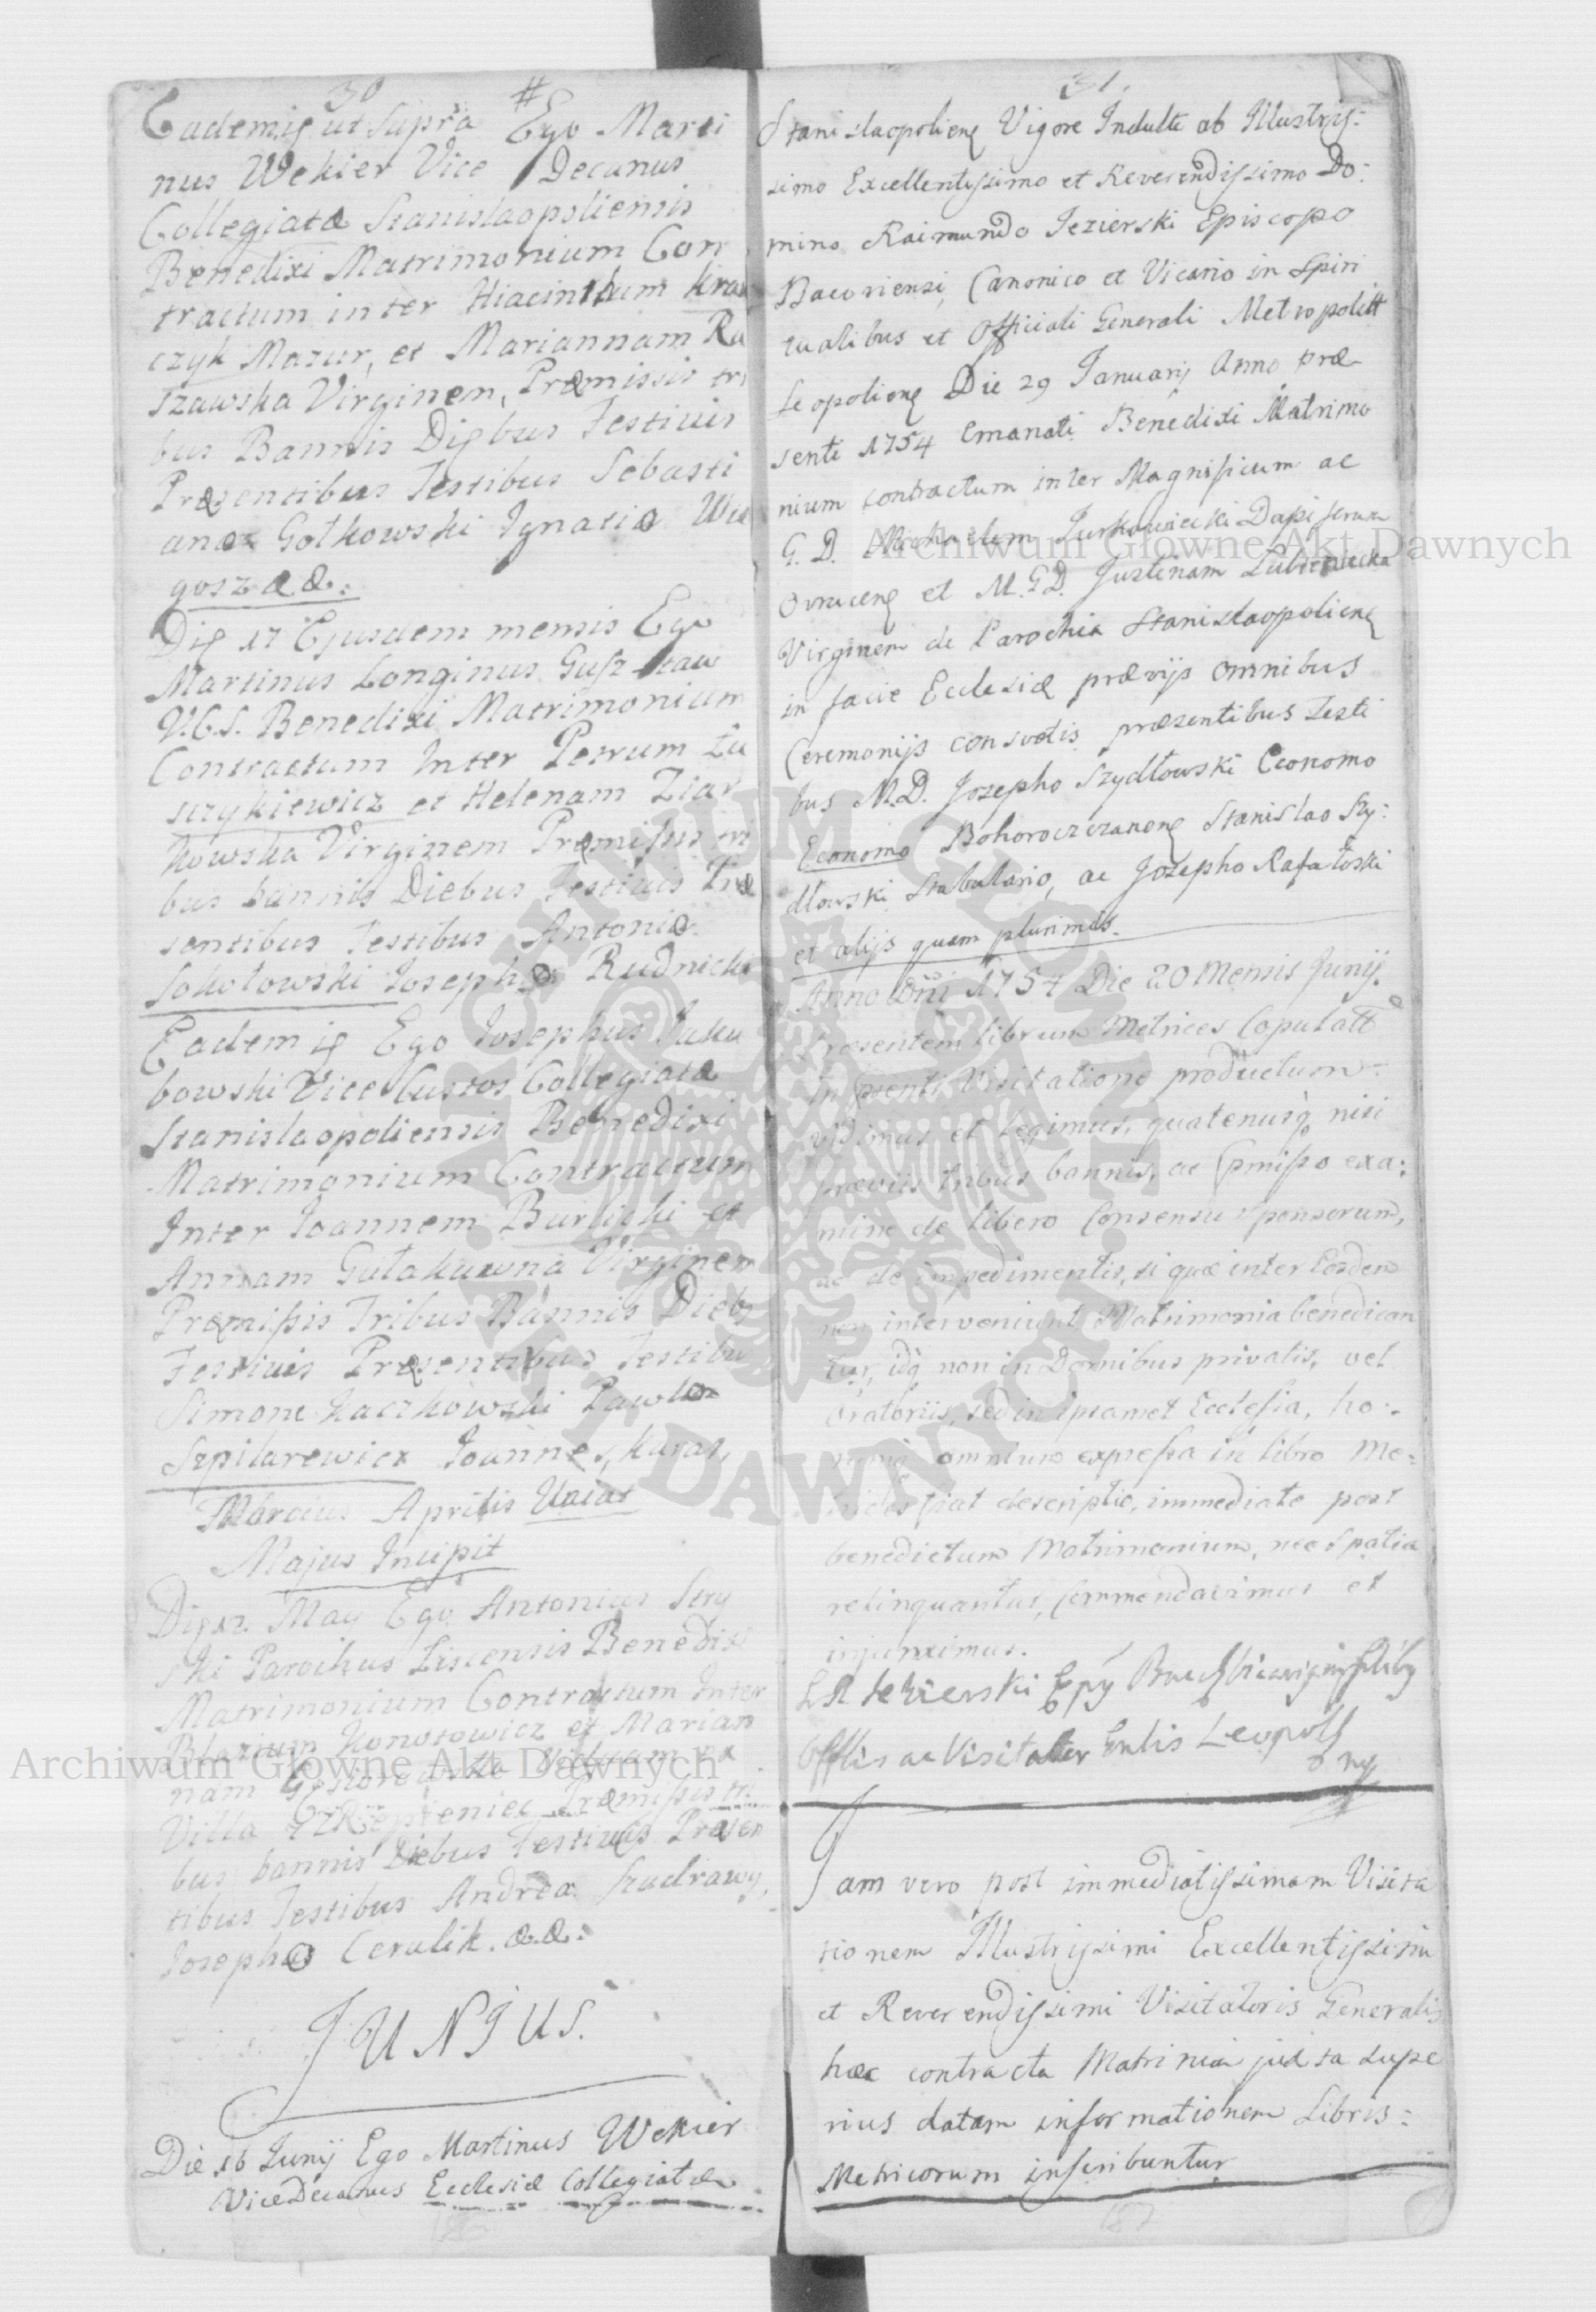 30
Eademiȩ ut Supra # Ego Marti
nus Wekier Vice Decanus
Collegiatæ Stanislaopoliensis
Benedixi Matrimonium Con
tractum inter Hiacinthum Kraw
czyk Mazur, et Mariannam Ra
szawska Virginem, Præmissis tri
bus Bannis Diebus Festiuis
Præsentibus Testibus Sebasti
ano Gołkowski Ignatio
gosz &&:
Die 17 Ejusdem mensis Ego
Martinus Longinus
V.C.S. Benedixi Matrimonium
Contractum Inter Petrum Łu
szykiewicz et Helenam Ziar
kowska Virginem Præmissis tri
bus bannis Diebus Festiuis Præ
sentibus Testibus Antonio
Sokołowski Josepho Rudnicki
Eadem ię Ego Josephus Jaku
bowski Vice Custos Collegiatæ
Stanislaopoliensis Benedixi
Matrimonium Contractum
Inter Joannem Burlicki et
Annam Virginem
Præmissis Tribus Bannis Dieb
Festiuis Præsentibus Testibu
Simone Kaczkowski Pawło
Szpilarewicz Joannes, Karat,
Marcius Aprilis Uacat
Majus Incipit
Die 12 May Ego Antonius Stry
ski Parochus Liscensis Benedixi
Matrimonium Contractum Inter
Blazium Konotowicz et Marian
nam Viduam ex
Villa Præmissis tri
bus bannis Diebus Festiuis Præsen
tibus Testibus Andrea Szudrawy,
Josepho Cerulik. &&:
JUNIUS.
Die 16 Junij Ego Martinus Wekier
ViceDecanus Ecclesiæ Collegiatæ
31.
Stanislaopolienȩ Vigore Indulti ab Illustris:
simo Excellentissimo et Reverendissimo Do:
mino Raimundo Jezierski Episcopo
Bacoviensi, Canonico et Vicario in Spiri
tualibus et Officiali Generali Metropolitt
Leopolienȩ Die 29 Januarij Anno præ
senti 1754 Emanati Benedixi Matrimo
nium contractum inter Magnificum ac
G. D. Michaelem Jurkowiecki Dapiferum
Ovrucenȩ et M.G.D. Justinam Lubieniecka
Virginem de Parochia Stanislaopolienȩ
in facie Ecclesiæ prævijs omnibus
Ceremonijs consvetis præsentibus Testi
bus M.D. Josepho Szydłowski Economo
Economo Bohorodczanenȩ Stanislao Szy:
dłowski Stabulario, ac Josepho Rafałoski
et alijs quam plurimis.
Anno Dñi 1754 Die 20 Mensis Junij.
Præsentem librum Metrices Copulatt
In præsenti Visitatione productum
vidimus et legimus, quatenusq; nisi
præviis tribus bannis, ac præmisso exa:
mine de libero Consensu sponsorum,
ac de impedimentis, si quæ inter Eosdem
non interveniunt Matrimonia benedican
tur, idq; non in Domibus privatis, vel
Oratoriis, sed in ipsamet Ecclesia, ho:
omnium expressa in libro Me:
trices fiat descriptio, immediate post
benedictum Matrimonium, nec spatia
relinquantur, Commendavimus et
injunximus.
Jezierski
ac Visitator Gnlis Leopol
Jam vero post immediatissimam Visita
tionem Illustrissimi Excellentissimi
et Reverendissimi Visitatoris Generalis
hæc contracta Matrimonia juxta supe
rius datam informationem Libris:
Metricorum inscribuntur
Archiwum Główne Akt Dawnych
Archiwum Główne Akt Dawnych
ARCHIWUM GŁÓWNE
AKT DAWNYCH